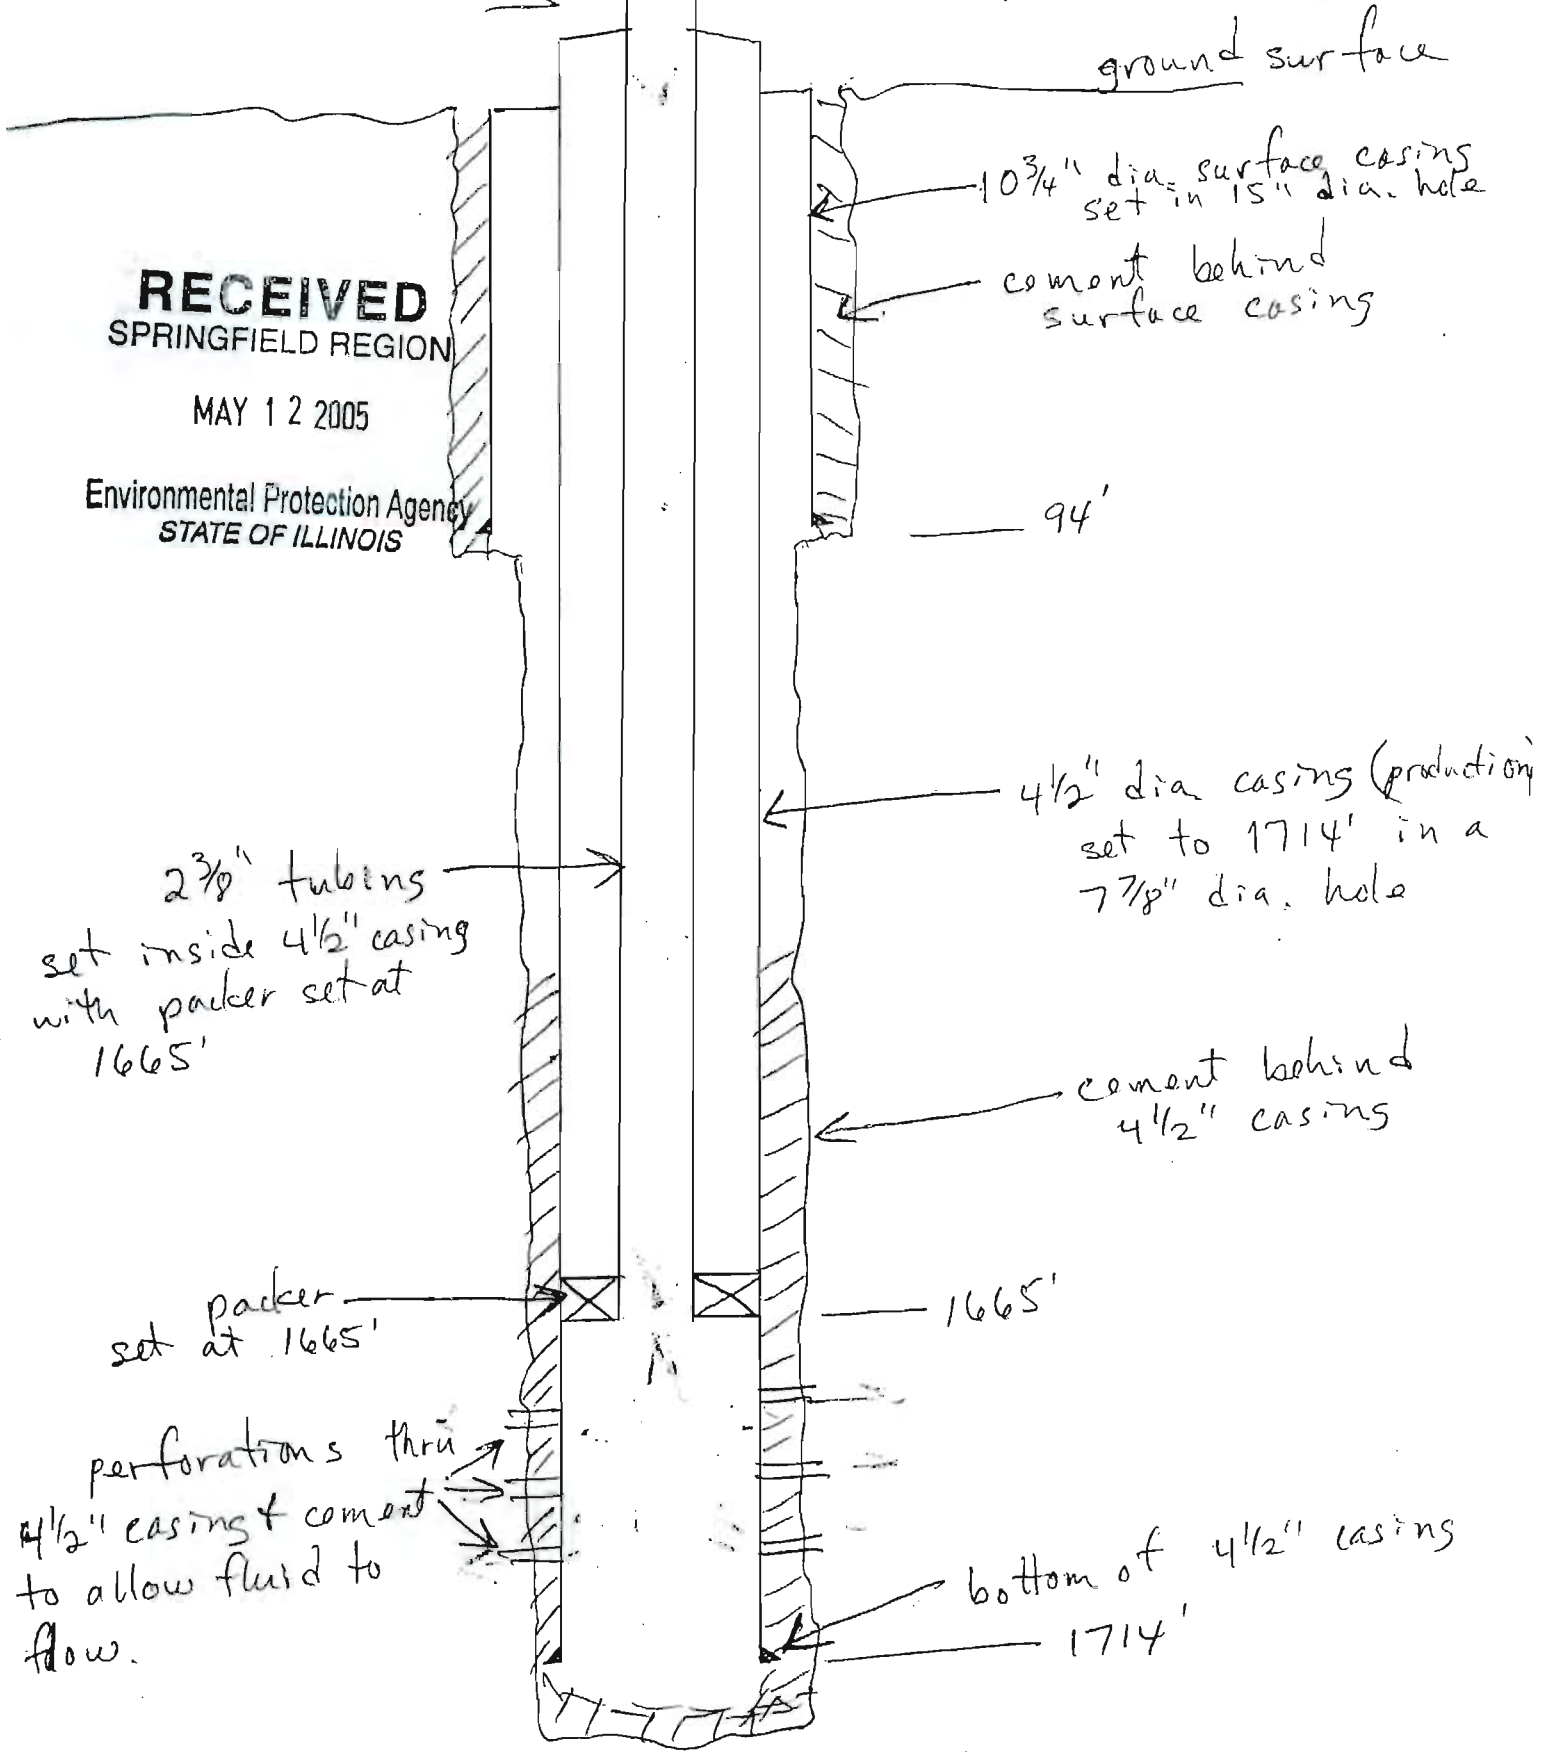 ground surface
10 3/4" dia. surface casing
set in 15" dia. hole
cement behind
surface casing
RECEIVED
SPRINGFIELD REGION
MAY 12 2005
Environmental Protection Agency
STATE OF ILLINOIS
94'
4 1/2" dia. casing (production)
set to 1714' in a
7 7/8" dia. hole
2 3/8" tubing
set inside 4 1/2" casing
with packer set at
1665'
cement behind
4 1/2" casing
packer
set at 1665'
1665'
perforations thru
4 1/2" casing & cement
to allow fluid to
flow.
bottom of 4 1/2" casing
1714'